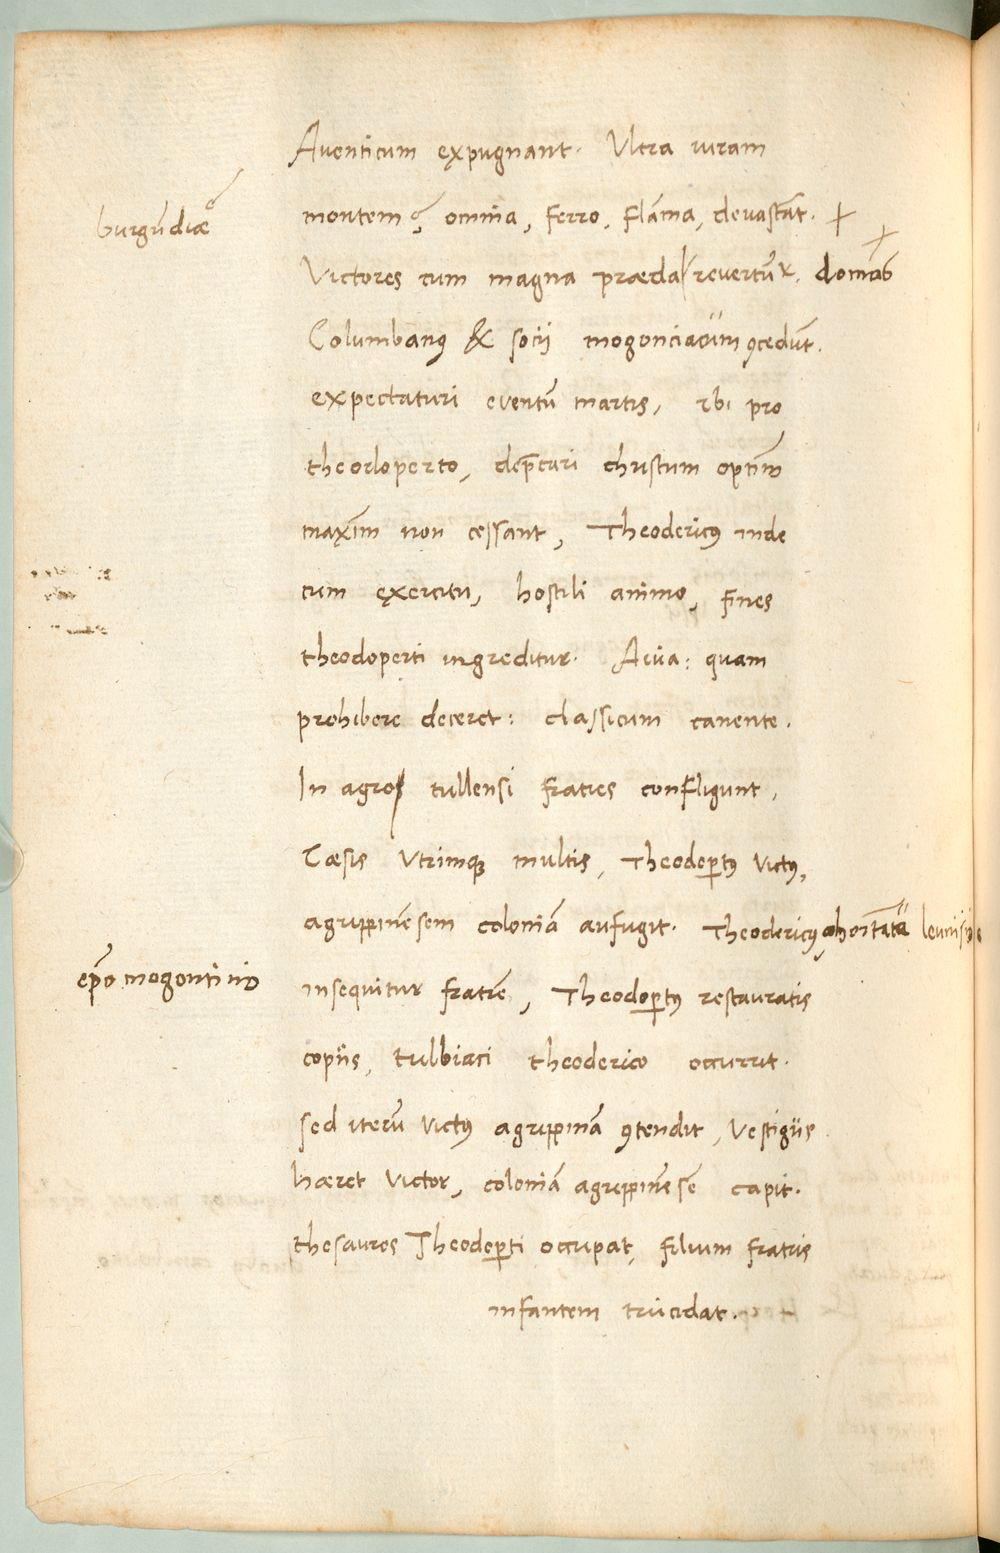 Auenticum expugnant. Ultra iuram
burgūdiæ
montem, omnia, ferro, flāma, devastāt.
Victores cum magna præda revertūr. domū
Columbanꝯ & socii mogonciacum ꝯcedūt.
expectaturi eventū martis, ubi pro
theodoperto, dep̄cari christum optimū
maximū non cessant, Theodericꝯ inde
cum exercitu, hostili animo, fines
theodoperti ingreditur. Auia: quam
prohibere deceret: classicum canente.
In agro tullensi fratres confligunt,
Cæsis utrimqꝫ multis, Theodop̱tꝯ victꝯ,
agrippinēsem coloniā aufugit. Theodericꝯ, ꝯhortātū
ep̄o mogontino
insequitur fratrē, Theodop̱tꝯ restauratis
copiis, tulbiaci theoderico occurrit.
sed iterū victꝯ agrippinā ꝯtendit, vestigiis
hæret victor, coloniā agrippinēsē capit.
thesauros Theodop̱ti occupat, filium fratris
infantem trucidat.